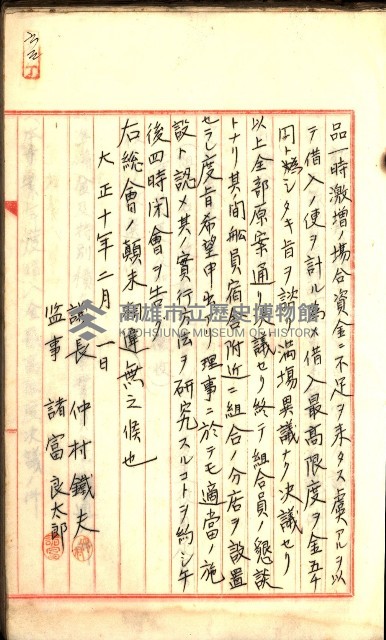 品一時激増ノ場合資金ニ不足ヲ来タス虞アルヲ以
テ借入ノ便ヲ計ル為メ借入最高限度ヲ金五千
円ト為シタキ旨ヲ談リ満場異議ナク決議セリ
以上全部原案通リ決議セリ終テ組合員ノ懇談
トナリ其ノ間船員宿舎附近ニ組合ノ分店ヲ設置
セラレ度旨希望申出 理事ニ於テモ適當ノ施
設ト認メ其ノ実行方法ヲ研究スルコトヲ約シ午
後四時閉會ヲ告
右総會ノ顛末 相違無之候也
大正十年二月 一日
議長 仲村鐵夫
監事 諸富良太郎
高雄市立歷史博物館
KAOHSIUNG MUSEUM OF HISTORY